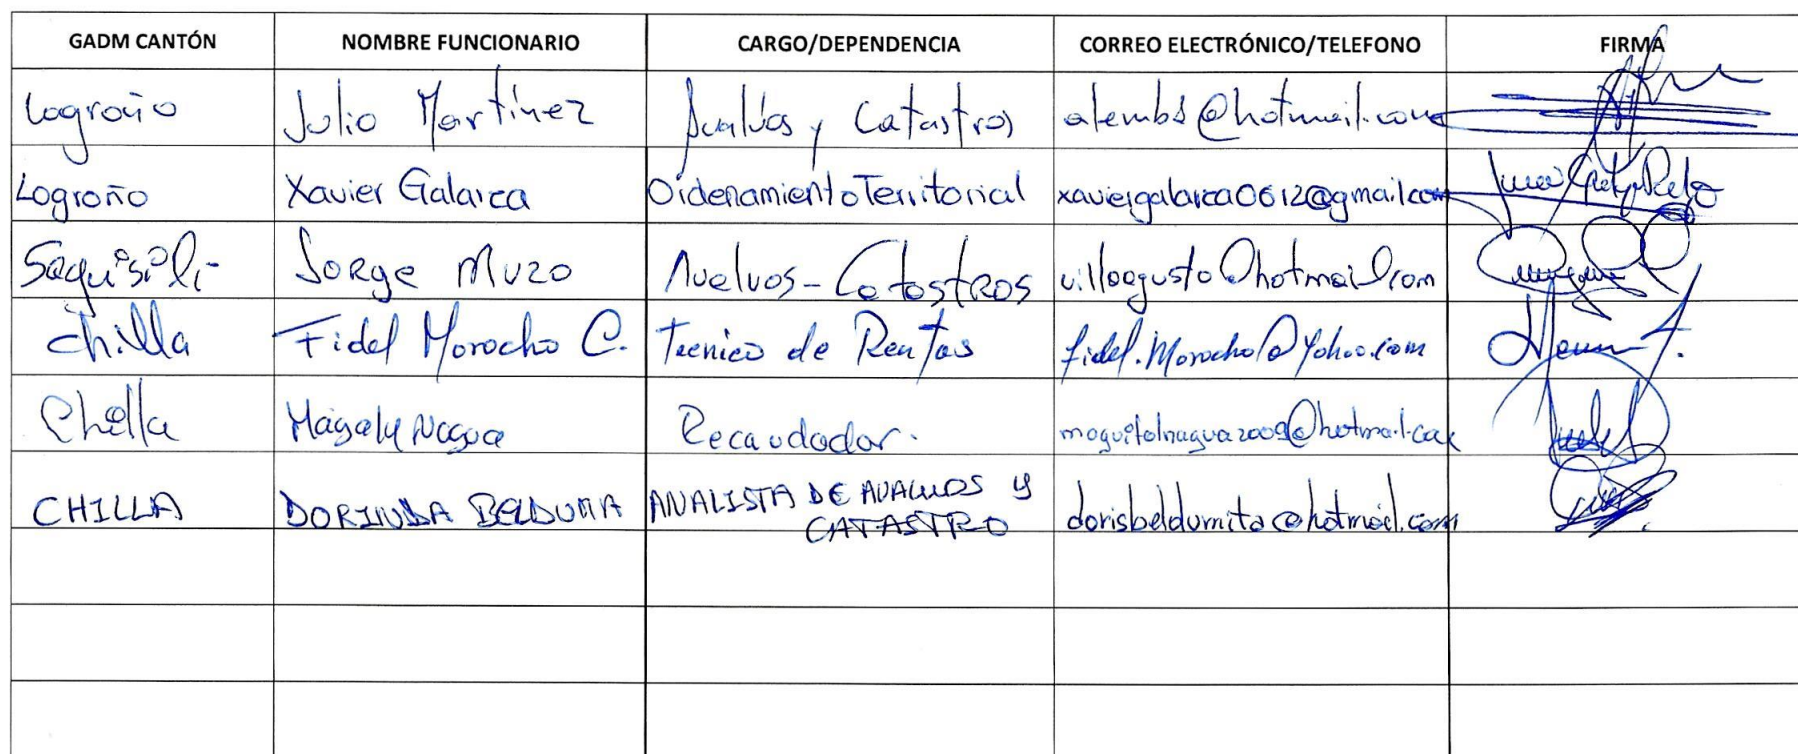 GADM CANTÓN NOMBRE FUNCIONARIO CARGO/DEPENDENCIA CORREO ELECTRÓNICO/TELEFONO FIRMA
Logroño Julio Martínez Avalúos y Catastros alembs@hotmail.com
Logroño Xavier Galarza Ordenamiento Territorial xaviergalarza0612@gmail.com
Saquisilí Jorge Muzo Avalúos - Catastros villaagusto@hotmail.com
Chilla Fidel Morocho C. Tecnico de Rentas fidel.Morocho@yahoo.com
Chilla Magaly Nagua Recaudador. @hotmail.com
CHILLA DORINDA BELDUMA ANALISTA DE AVALUOS Y dorisbeldumita@hotmail.com
CATASTRO